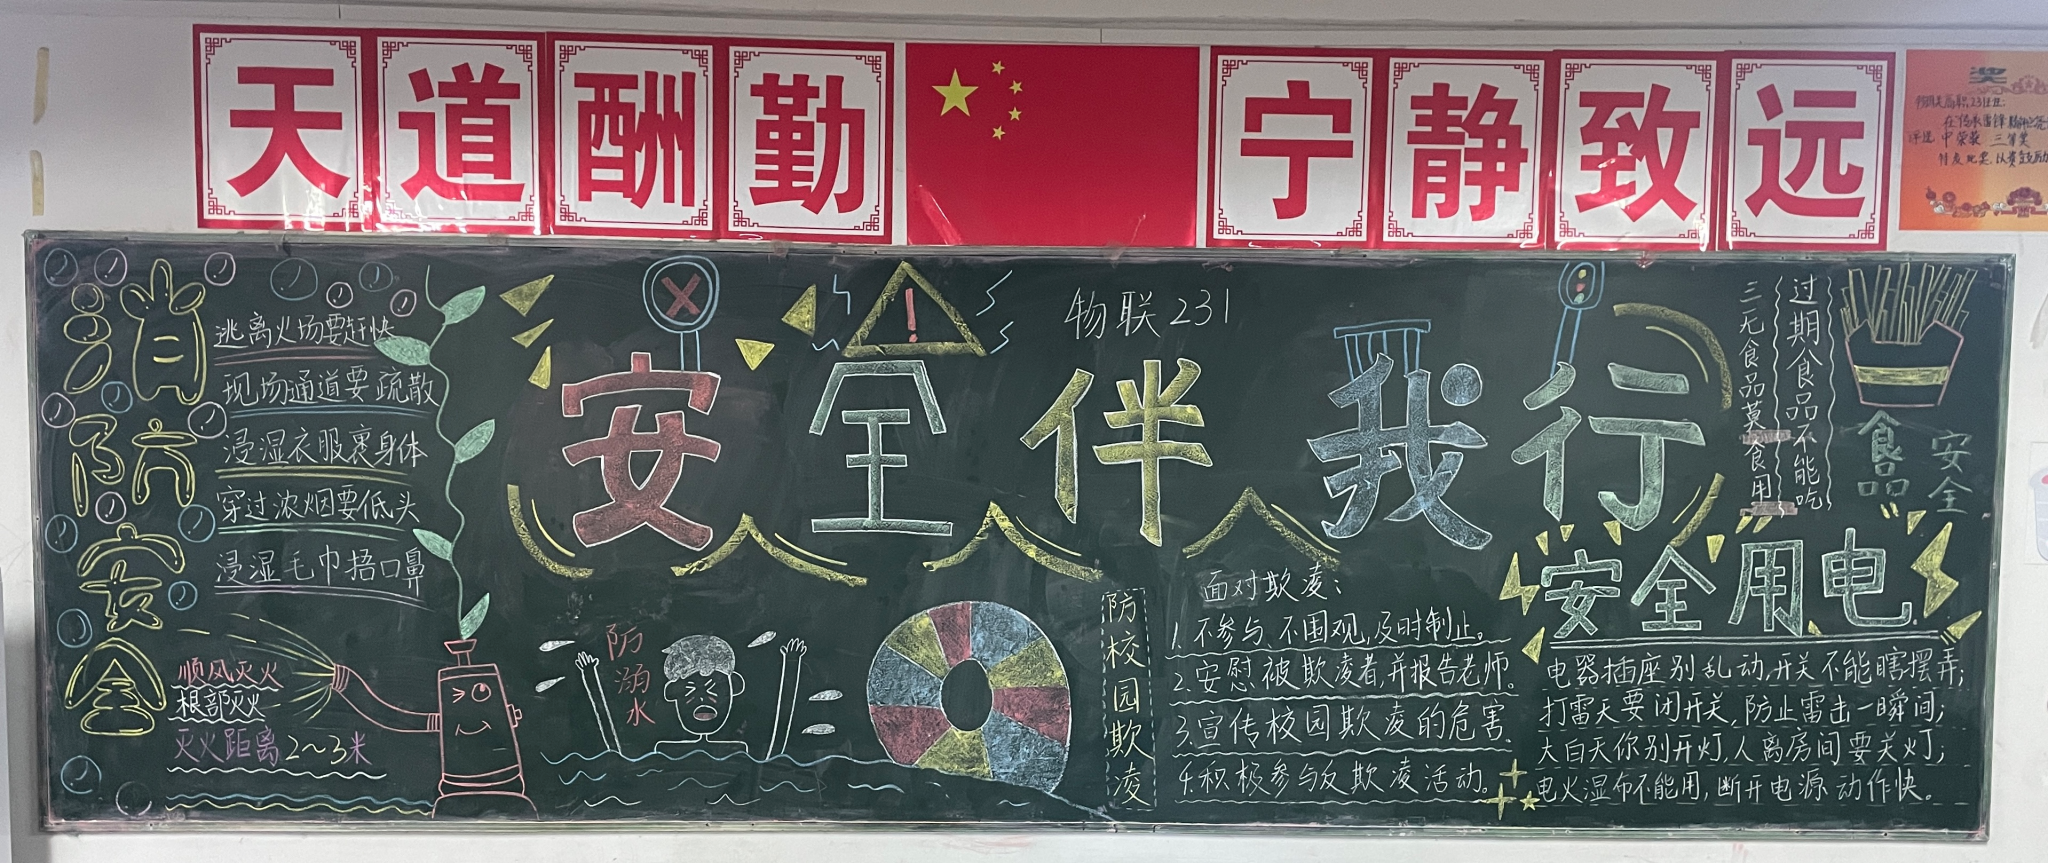 天道酬勤
宁静致远
奖
在传承雷锋精神
评选中荣获三等奖
特发此奖,以资鼓励
消防安全
逃离火场要赶快
现场通道要疏散
浸湿衣服裹身体
穿过浓烟要低头
浸湿毛巾捂口鼻
顺风灭火
根部灭火
灭火距离2~3米
物联231
安全伴我行
防溺水
防校园欺凌
面对欺凌:
1.不参与、不围观,及时制止。
2.安慰被欺凌者,并报告老师。
3.宣传校园欺凌的危害.
4.积极参与反欺凌活动。
三无食品莫食用
过期食品不能吃
食品安全
安全用电
电器插座别乱动,开关不能瞎摆弄;
打雷天要闭开关,防止雷击一瞬间;
大白天你别开灯,人离房间要关灯;
电火湿布不能用,断开电源动作快。